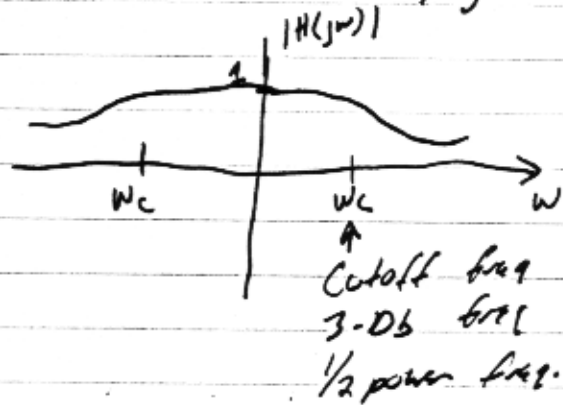 |H(jw)|
1
Wc
Wc
W
Cutoff freq
3-Db freq
1/2 power freq.